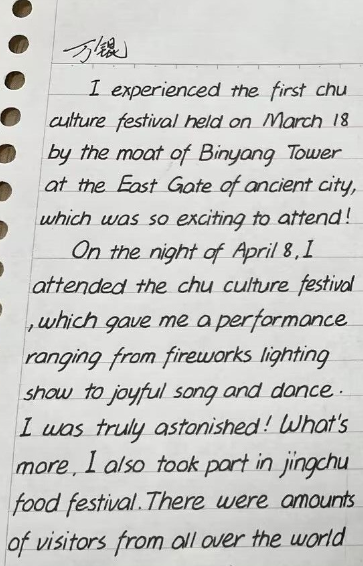 万锟
I experienced the first chu
culture festival held on March 18
by the moat of Binyang Tower
at the East Gate of ancient city,
which was so exciting to attend!
On the night of April 8, I
attended the chu culture festival
, which gave me a performance
ranging from fireworks lighting
show to joyful song and dance.
I was truly astonished! What's
more, I also took part in jingchu
food festival. There were amounts
of visitors from all over the world